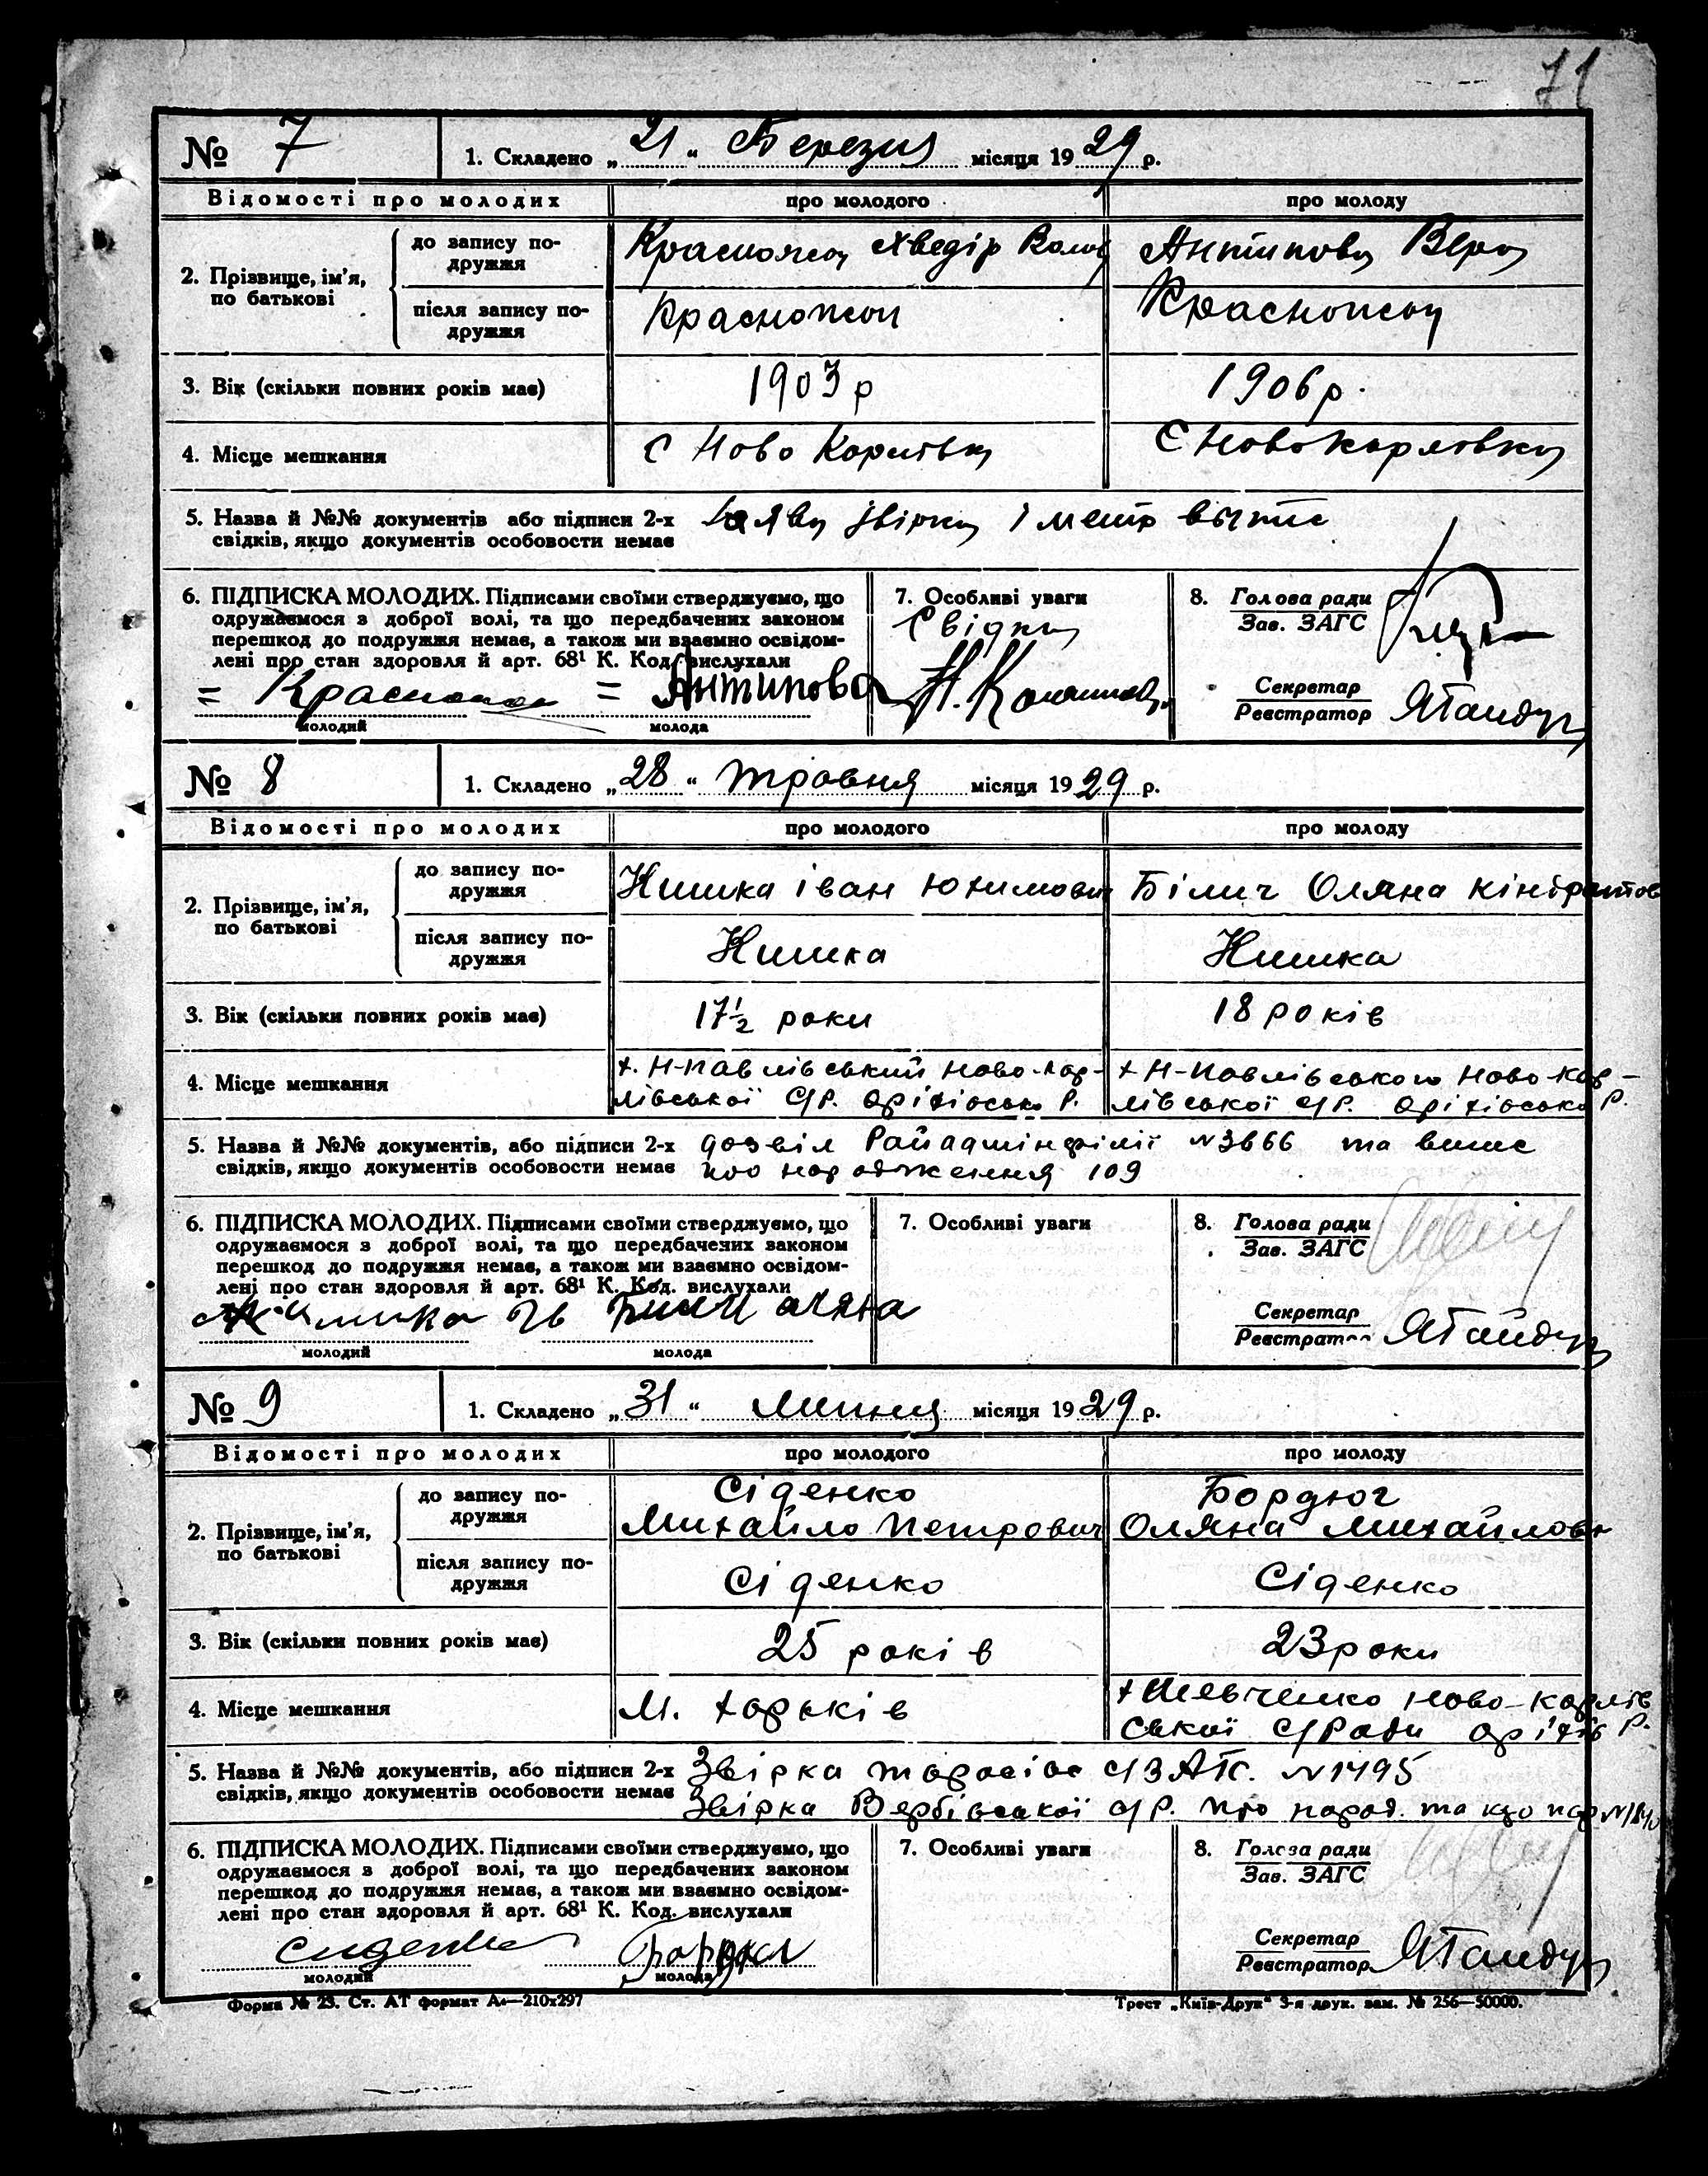 71
№ 7 1. Складено „21“ Березня місяця 1929 р.
Відомості про молодих про молодого про молоду
2. Прізвище, ім'я, по батькові
до запису подружжя Хведір Антипова Вера
після запису подружжя
3. Вік (скільки повних років має) 1903 р 1906 р.
4. Місце мешкання с Ново Карлівка С Ново Карлівка
5. Назва й №№ документів або підписи 2-х Заява звірка і метр выпис
свідків, якщо документів особовости немає
6. ПІДПИСКА МОЛОДИХ. Підписами своїми стверджуємо, що
одружаємося з доброї волі, та що передбачених законом
перешкод до подружжя немає, а також ми взаємно освідом-
лені про стан здоровля й арт. 68¹ К. Код. вислухали
= = Антипова
молодий молода
7. Особливі уваги
Свідки
8. Голова ради
Зав. ЗАГС
Секретар
Реєстратор
№ 8 1. Складено „28“ травня місяця 1929 р.
Відомості про молодих про молодого про молоду
2. Прізвище, ім'я, по батькові
до запису подружжя Кишка іван Юхимович Білич Оляна кіндратов
після запису подружжя Кишка Кишка
3. Вік (скільки повних років має) 17½ роки 18 років
4. Місце мешкання х. Н-павлівський Ново-кар- х Н-павлівського Ново кар-
лівської С/Р. оріхівсько Р. лівської С/Р. оріхівсько Р.
5. Назва й №№ документів, або підписи 2-х дозвіл Райадмінфілії № 3666 та випис
свідків, якщо документів особовости немає про народження 109
6. ПІДПИСКА МОЛОДИХ. Підписами своїми стверджуємо, що
одружаємося з доброї волі, та що передбачених законом
перешкод до подружжя немає, а також ми взаємно освідом-
лені про стан здоровля й арт. 68¹ К. Код. вислухали
Кишка Ив аляна
молодий молода
7. Особливі уваги
8. Голова ради
Зав. ЗАГС
Секретар
Реєстратор
№ 9 1. Складено „31“ Липня місяця 1929 р.
Відомості про молодих про молодого про молоду
2. Прізвище, ім'я, по батькові
до запису подружжя Сіденко Бордюг
Михайло Петрович Оляна Михайловн
після запису подружжя Сіденко Сіденко
3. Вік (скільки повних років має) 25 років 23 роки
4. Місце мешкання М. Харьків х Шевченко Ново-карлів
ської С/Ради оріхів Р.
5. Назва й №№ документів, або підписи 2-х Звірка № 1495
свідків, якщо документів особовости немає Звірка Вербівської С/Р. про народ. та
6. ПІДПИСКА МОЛОДИХ. Підписами своїми стверджуємо, що
одружаємося з доброї волі, та що передбачених законом
перешкод до подружжя немає, а також ми взаємно освідом-
лені про стан здоровля й арт. 68¹ К. Код. вислухали
Сиденко
молодий молода
7. Особливі уваги
8. Голова ради
Зав. ЗАГС
Секретар
Реєстратор
Форма № 23. Ст. АТ формат А₄—210х297 Трест „Київ-Друк“ 3-я друк. зам. № 256—50000.